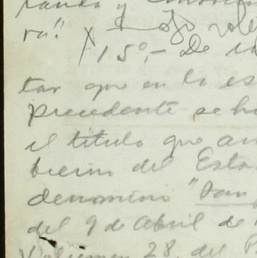 ra".
15º.- De
tar que en la es
precedente se h
el título que an
bierno del Esta
denomino "San
del 9 de Abril de
Volumen 28, del P